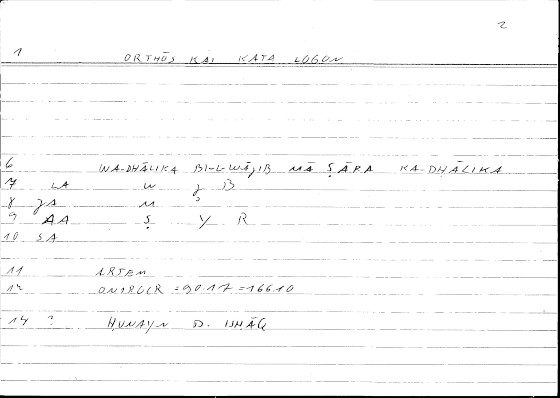 2
1 ORTHŌS KAI KATA LOGON
6 WA-DHĀLIKA BI-L-WĀJIB MĀ ṢĀRA KA-DHĀLIKA
7 LA W J B
8 JA M ?
9 AA Ṣ Y R
10 SA
11 ARTEM
12 ONIROCR = 90.17 = 166.10
14 ? ḤUNAYN B. ISḤĀQ